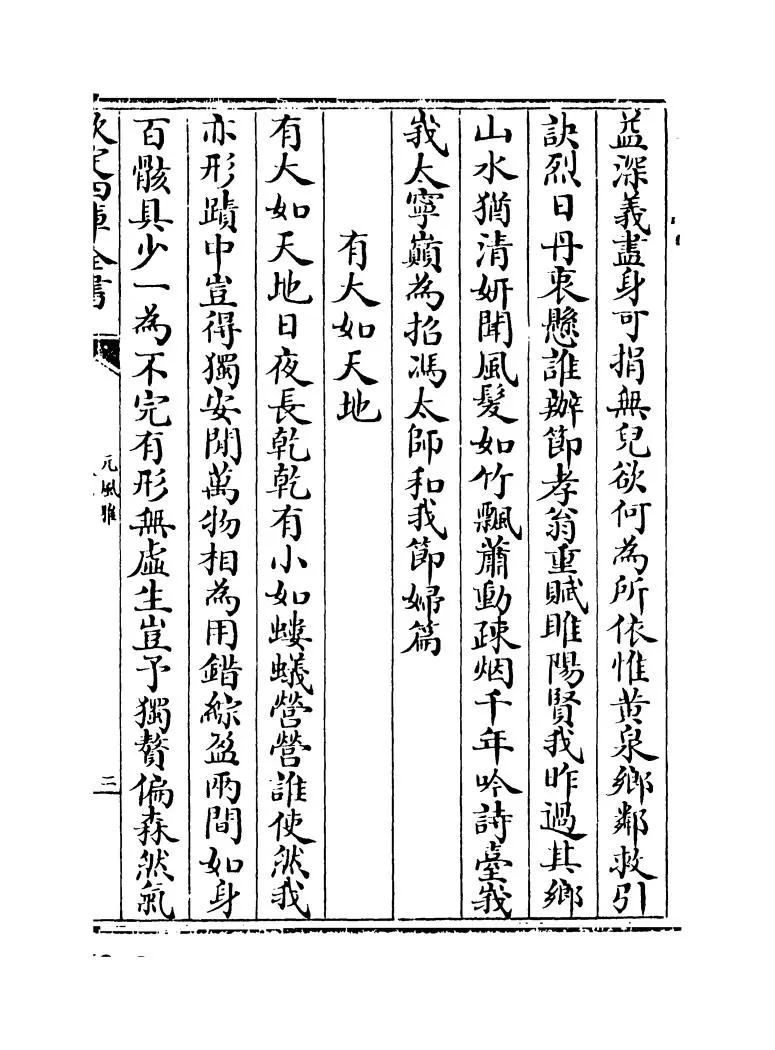 益深義盡身可捐無兒欲何為所依惟黄泉鄉鄰救引
訣烈日丹衷懸誰辦節孝翁重賦睢陽賢我昨過其鄉
山水猶清妍聞風髮如竹飄蕭動疎烟千年吟詩臺峩
峩太寧巔為招馮太師和我節婦篇
有大如天地
有大如天地日夜長乾乾有小如螻蟻營營誰使然我
亦形蹟中豈得獨安閒萬物相為用錯綜盈兩間如身
百骸具少一為不完有形無虛生豈予獨贅偏森然氣
欽定四庫全書
元風雅
三